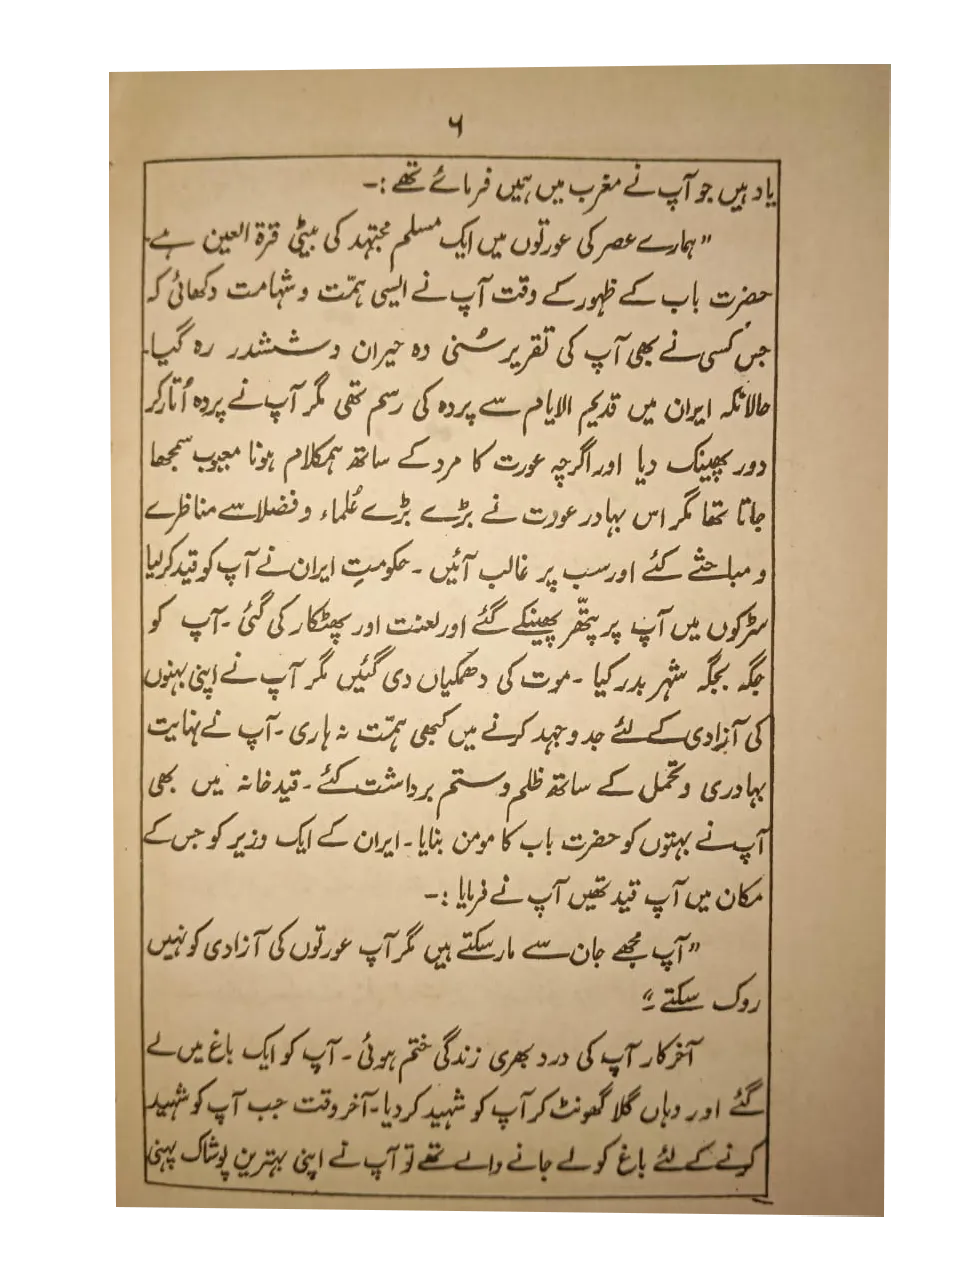 ۶
یاد ہیں جو آپ نے مغرب میں ہمیں فرمائے تھے :-
"ہمارے عصر کی عورتوں میں ایک مسلم مجتہد کی بیٹی قرۃ العین ہے۔
حضرت باب کے ظہور کے وقت آپ نے ایسی ہمّت و شہامت دکھائی کہ
جس کسی نے بھی آپ کی تقریر سُنی وہ حیران و ششدر رہ گیا۔
حالانکہ ایران میں قدیم الایام سے پردہ کی رسم تھی مگر آپ نے پردہ اُتار کر
دور پھینک دیا اور اگرچہ عورت کا مرد کے ساتھ ہمکلام ہونا معیوب سمجھا
جاتا تھا مگر اس بہادر عورت نے بڑے بڑے عُلماء و فضلا سے مناظرے
و مباحثے کئے اور سب پر غالب آئیں ۔ حکومتِ ایران نے آپ کو قید کر لیا
سڑکوں میں آپ پر پتھّر پھینکے گئے اور لعنت اور پھٹکار کی گئی ۔ آپ کو
جگہ بجگہ شہر بدر کیا ۔ موت کی دھمکیاں دی گئیں مگر آپ نے اپنی بہنوں
کی آزادی کے لئے جد و جہد کرنے میں کبھی ہمّت نہ ہاری ۔ آپ نے نہایت
بہادری و تحمل کے ساتھ ظلم و ستم برداشت کئے ۔ قید خانہ میں بھی
آپ نے بہتوں کو حضرت باب کا مومن بنایا ۔ ایران کے ایک وزیر کو جس کے
مکان میں آپ قید تھیں آپ نے فرمایا :-
"آپ مجھے جان سے مار سکتے ہیں مگر آپ عورتوں کی آزادی کو نہیں
روک سکتے ۔"
آخر کار آپ کی درد بھری زندگی ختم ہوئی ۔ آپ کو ایک باغ میں لے
گئے اور وہاں گلا گھونٹ کر آپ کو شہید کر دیا ۔ آخر وقت جب آپ کو شہید
کرنے کے لئے باغ کو لے جانے والے تھے تو آپ نے اپنی بہترین پوشاک پہنی